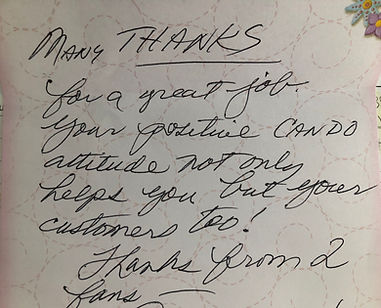 Many THANKS
for a great job.
Your positive CANDO
attitude not only
helps you but your
customers too!
Thanks from 2
fans